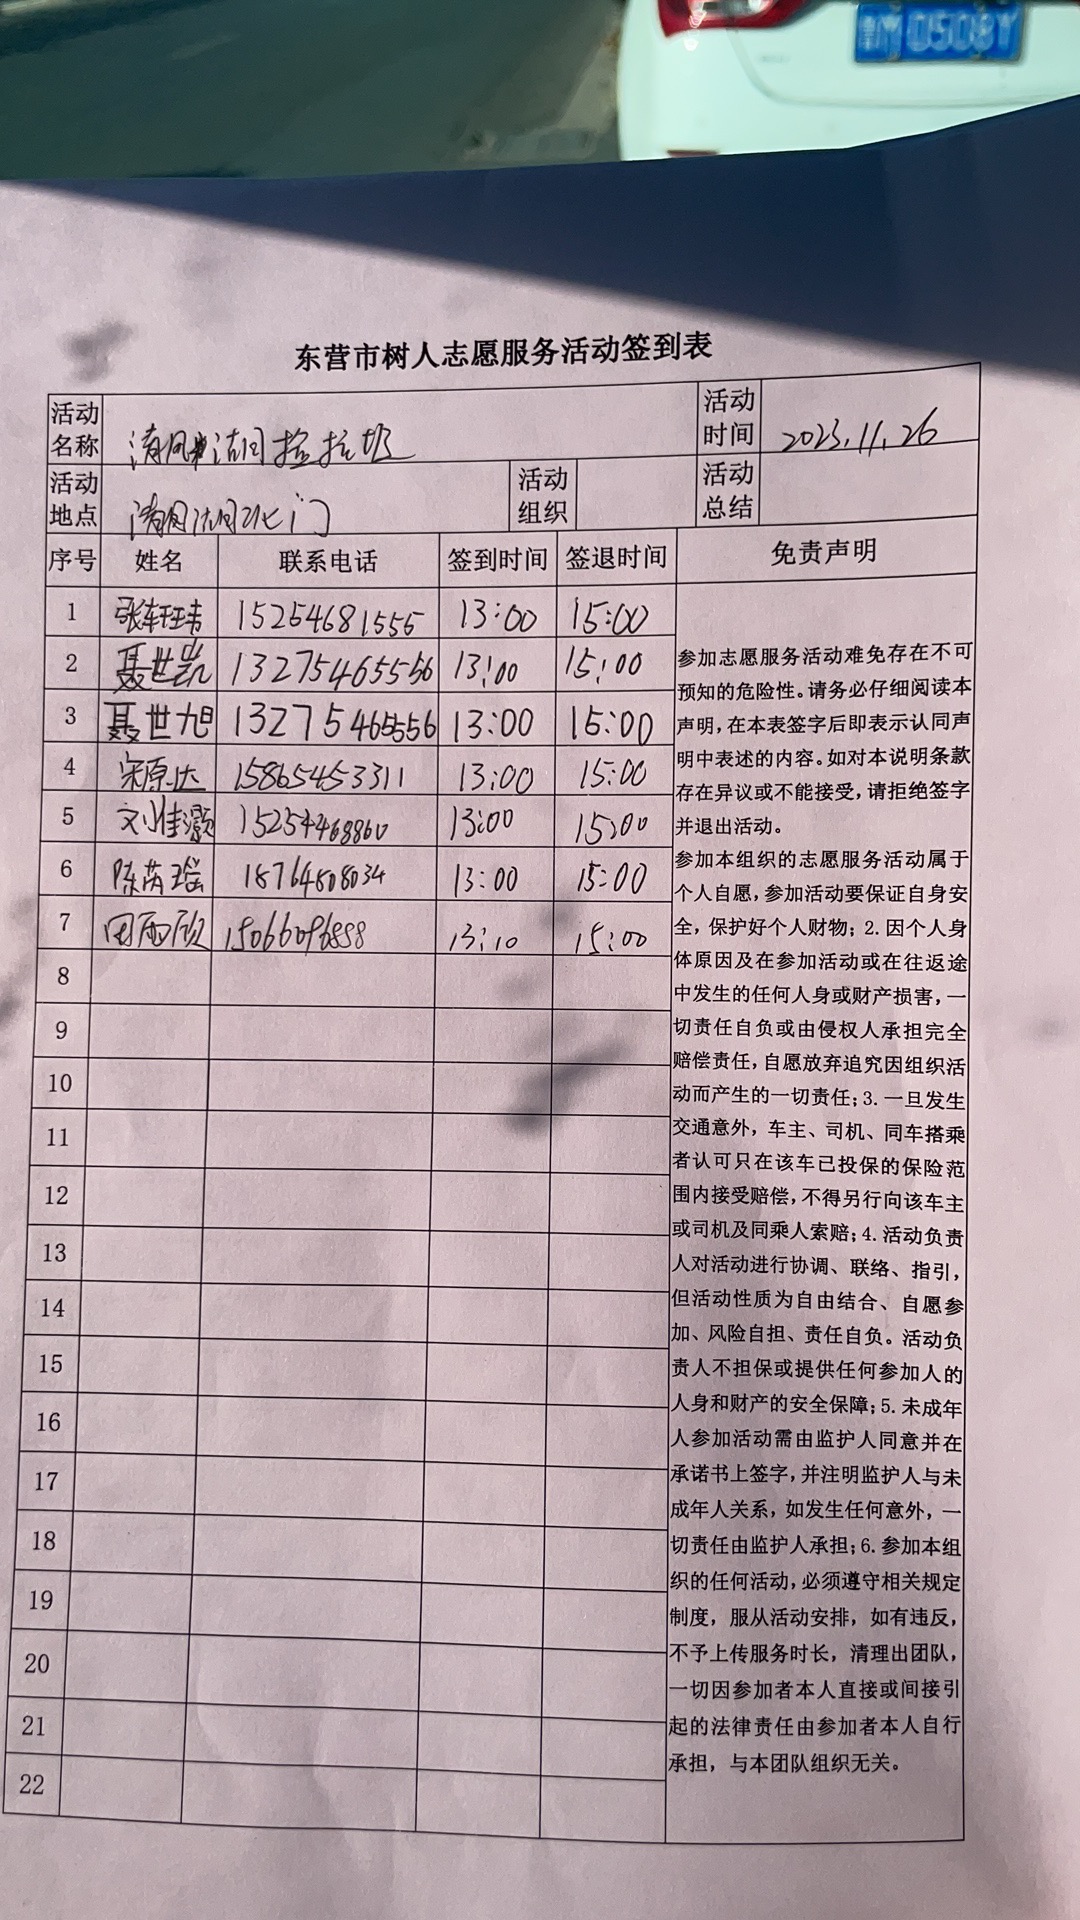 0508Y
东营市树人志愿服务活动签到表
活动名称 清风湖捡垃圾 活动时间 2023.11.26
活动地点 清风湖北门 活动组织 活动总结
序号 姓名 联系电话 签到时间 签退时间 免责声明
1 15254681555 13:00 15:00
2 聂世凯 13275465556 13:00 15:00
3 聂世旭 13275465556 13:00 15:00
4 宋原达 15865453311 13:00 15:00
5 刘佳灏 15254468860 13:00 15:00
6 陈芮瑶 18764808034 13:00 15:00
7 田雨欣 15066096888 13:10 15:00
8
9
10
11
12
13
14
15
16
17
18
19
20
21
22
参加志愿服务活动难免存在不可
预知的危险性。请务必仔细阅读本
声明，在本表签字后即表示认同声
明中表述的内容。如对本说明条款
存在异议或不能接受，请拒绝签字
并退出活动。
参加本组织的志愿服务活动属于
个人自愿，参加活动要保证自身安
全，保护好个人财物；2. 因个人身
体原因及在参加活动或在往返途
中发生的任何人身或财产损害，一
切责任自负或由侵权人承担完全
赔偿责任，自愿放弃追究因组织活
动而产生的一切责任；3. 一旦发生
交通意外，车主、司机、同车搭乘
者认可只在该车已投保的保险范
围内接受赔偿，不得另行向该车主
或司机及同乘人索赔；4. 活动负责
人对活动进行协调、联络、指引，
但活动性质为自由结合、自愿参
加、风险自担、责任自负。活动负
责人不担保或提供任何参加人的
人身和财产的安全保障；5. 未成年
人参加活动需由监护人同意并在
承诺书上签字，并注明监护人与未
成年人关系，如发生任何意外，一
切责任由监护人承担；6. 参加本组
织的任何活动，必须遵守相关规定
制度，服从活动安排，如有违反，
不予上传服务时长，清理出团队，
一切因参加者本人直接或间接引
起的法律责任由参加者本人自行
承担，与本团队组织无关。